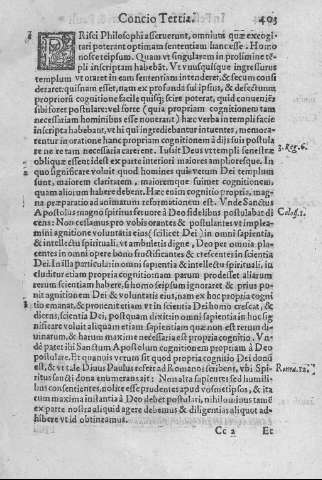 Concio Tertia. 403
PRisci Philosophi asseruerunt, omniũ quæ excogi-
tari poterant optimam sententiam hanc esse. Homo
nosce teipsum. Quam vt singularem in prolimine tẽ-
pli inscriptam habebãt. Vt vnusquisque ingressurus
templum vt oraret in eam sententiam intenderet, & secum consi
deraret: quisnam esset, nam ex profunda sui ipsius, & defectuum
propriorũ cognitione facile quisq; scire poterat, quid conueniẽs
sibi foret postulare: vel forte (quia propriam cognitionem tam
necessatiam hominibus esse nouerant) hæc verba in templi facie
inscripta habebant, vt hi qui ingrediebantur intuentes, memora-
rentur in oratione hanc propriam cognitionem à dijs suis postula
re ne re tam necessaria carerent. Iussit Deus vt templi fenestræ
3. Reg. 6.
obliquæ essent: idest ex parte interiori maiores amplioresque. In
quo significare voluit quod homines qui verum Dei templum
sunt, maiorem claritatem, maioremque suimet cognitionem,
quam aliorum habere debent. Hæc enim cognitio propria, mag-
na præparatio ad animatum reformationem est. Vnde Sanctus
Apostolus magno spiritus feruore à Deo fidelibus postulabat di
Colos. 1.
cens: Non cessamus pro vobis orantes & postulantes vt implea-
mini agnitione voluntatis eius (scilicet Dei) in omni sapientia,
& intellectu spirituali, vt ambuletis digne, Deo per omnia pla-
centes in omni opere bono fructificantes & crescentes in scientia
Dei. In illa particula: in omni sapientia & intellectu spirituali, in
cluditur etiam propria cognitio: nam parum prodesset aliarum
rerum scientiam habere, si homo seipsum ignoraret & prius po-
nit agnitionem Dei & voluntatis eius, nam ex hoc propria cogni
tio emanat, & prouenit etiam vt in scientia Dei homo crescat, &
dicens, scientia Dei, postquam dixit: in omni sapientia in hoc sig
nificare voluit aliquam etiam sapientiam quæ non est rerum di-
uinarum, & harum maxime necessaria est propria cognitio. Vn-
dè patet ibi Sanctum Apostolum cognitionem propriam à Deo
postulare. Et quamuis verum sit quod propria cognitio Dei donũ
est, & vt tale Diuus Paulus refert ad Romanos scribens, vbi Spi-
Roma. 12.
ritus sancti dona enumerans ait: Non alta sapientes sed humili-
bus consentientes, nolite esse prudentes apud vosmetipsos, & ita
cum maxima instantia à Deo debet postulari, nihilominus tamẽ
ex parte nostra aliquid agere debemus & diligentias aliquot ad-
hibere vt id obtineamus.
Cc 2 Et